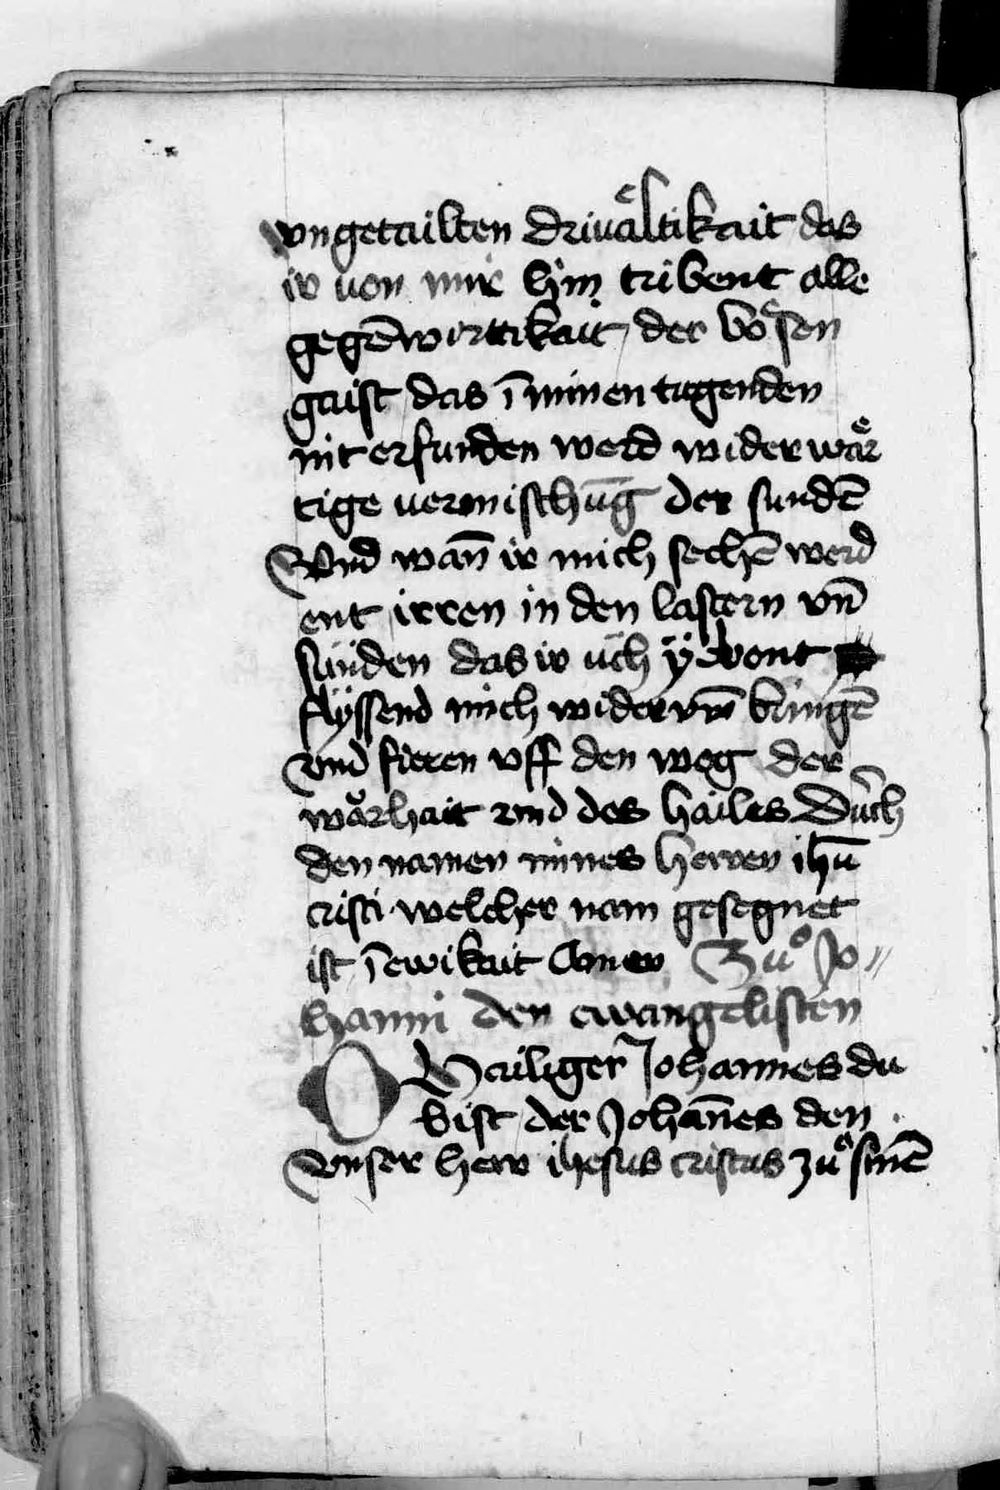 vngetailten driuaͤltikait das
ir von mir hin tribent alle
gegēwirttikait der boͤsen
gaist das ī minen tugenden
nit erfunden werd widerwaͤr
tige uermischūg der sundē
Vnd wañ ir mich sechē werd
ent irren in den lastern vñ
sünden das ir üch ÿ
flÿssend mich widervm̄ bringē
vnd fieren vff den weg der
waͦrhait vnd des hailes Durch
den namen mines herren ihū
cristi welcher nam gesegnet
ist ī ewikait Amen Zuͦ Jo〃
hanni den ewangelisten
O Hailiger Johannes du
bist der Johañes den
Vnser herr ihesus cristus zuͦ sinē